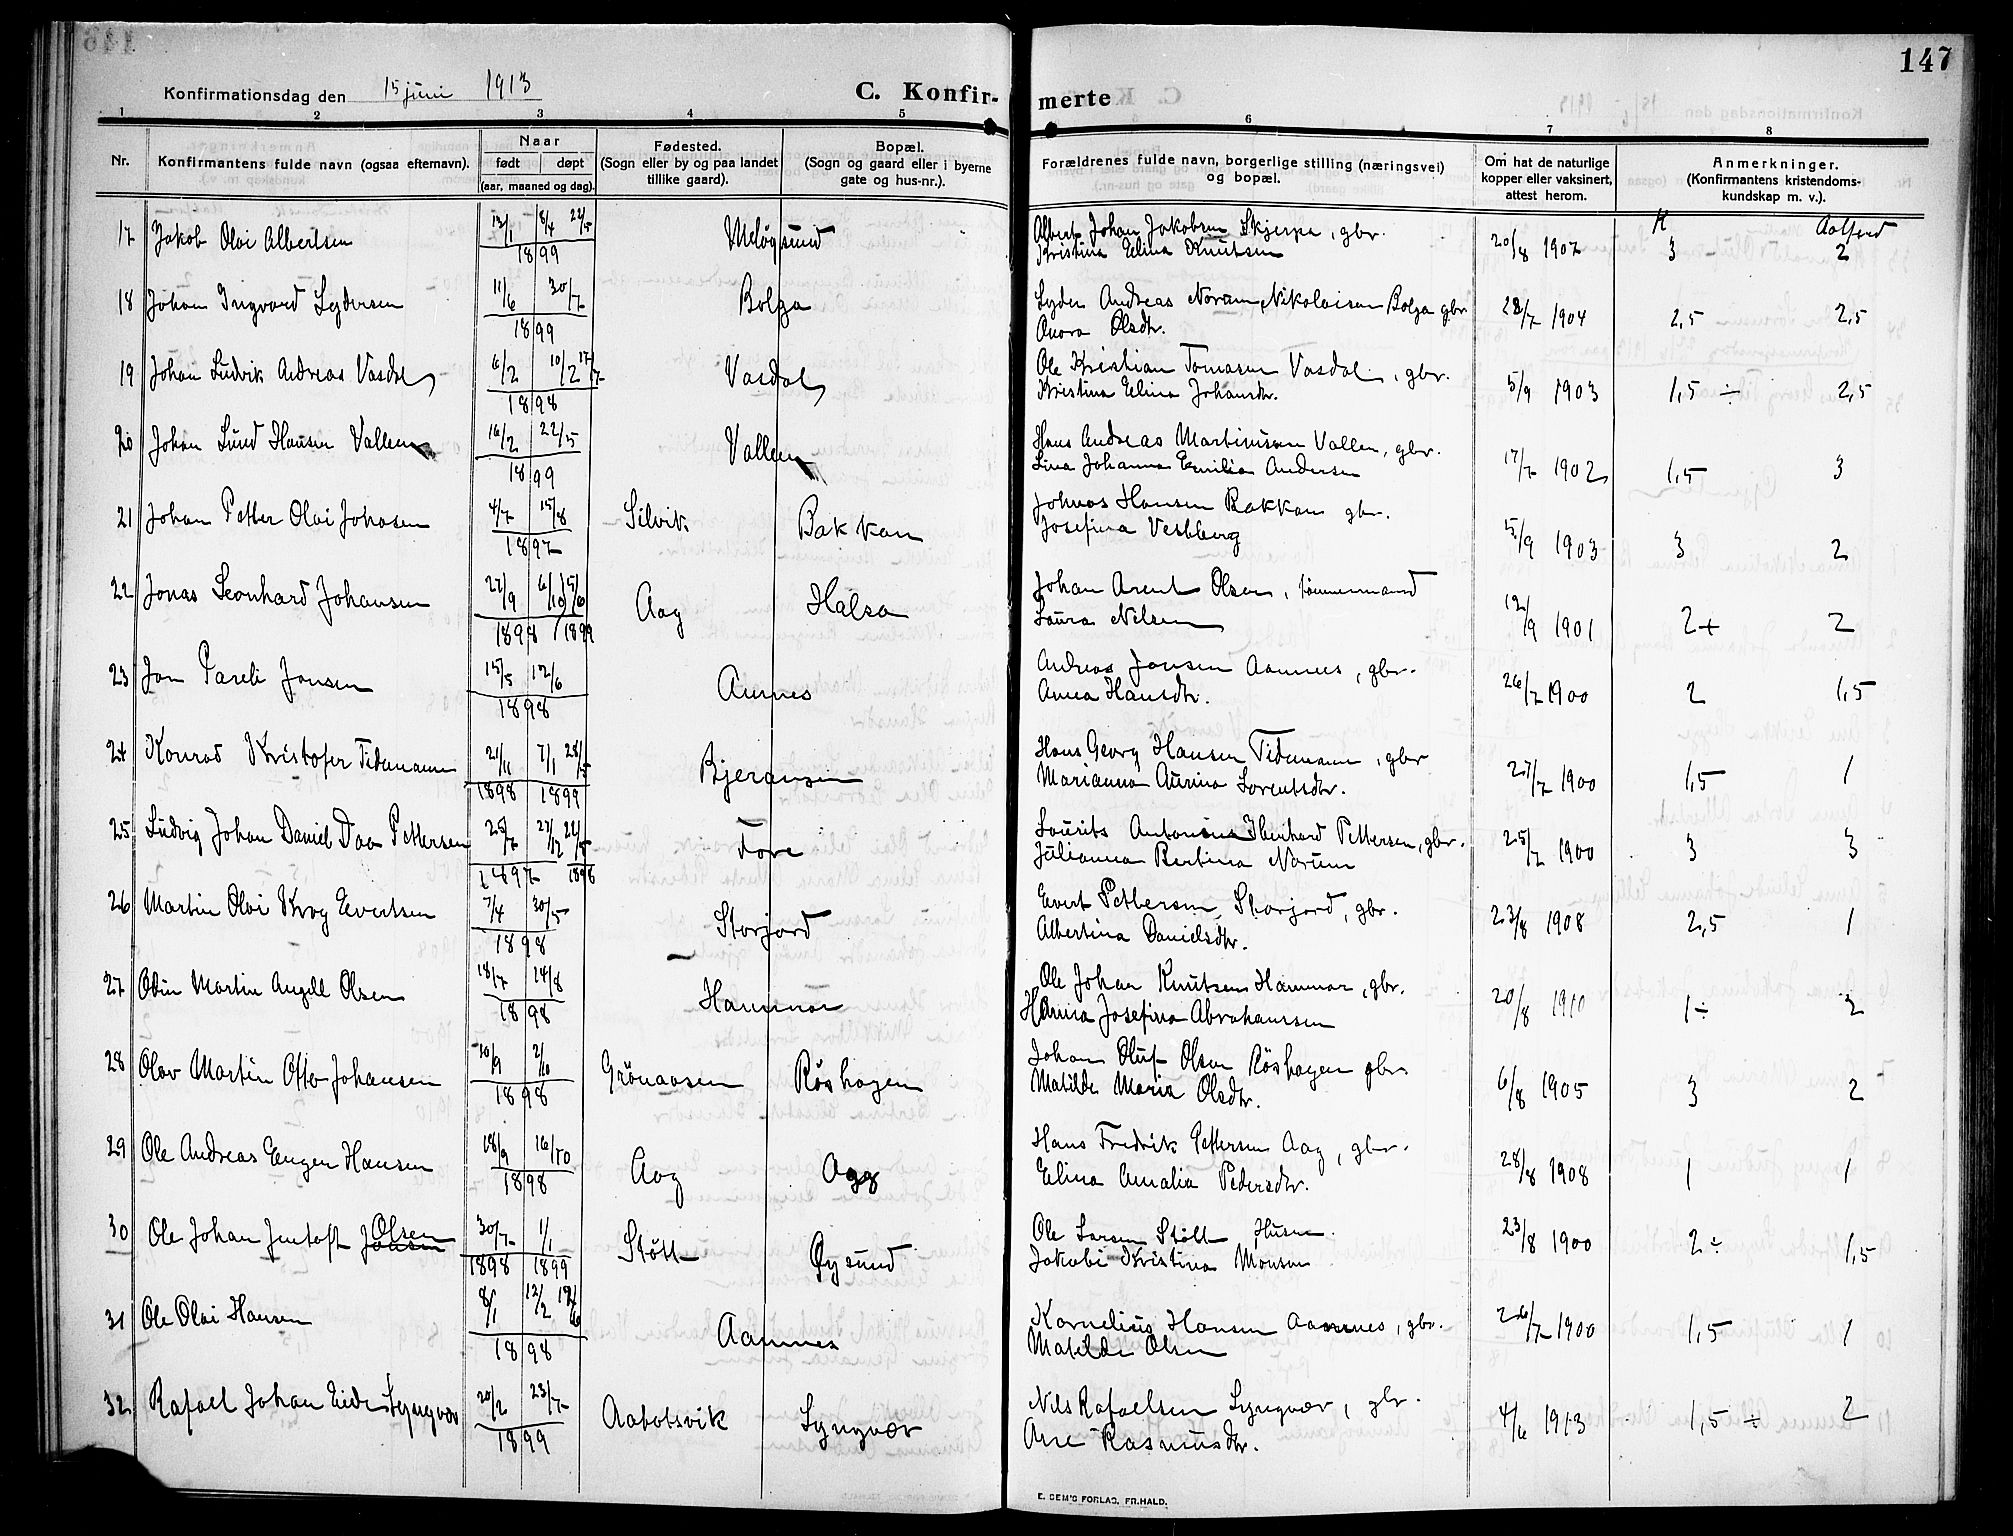 147
Konfirmationsdag den 15 juni 1913
C. Konfirmerte
1 2 3 4 5 6 7 8
Nr. Konfirmantens fulde navn (ogsaa efternavn). Naar født døpt (aar, maaned og dag). Fødested. (Sogn eller by og paa landet tillike gaard). Bopæl. (Sogn og gaard eller i byerne gate og hus-nr.). Forældrenes fulde navn, borgerlige stilling (næringsvei) og bopæl. Om hat de naturlige kopper eller vaksinert, attest herom. Anmerkninger. (Konfirmantens kristendomskundskap m. v.).
17 Jakob Olai Albertsen 12/1 8/4 22/5 Meløysund Albert Johan Jakobsen Skjerpa, gbr. 20/8 1907 3 2
1899 Kristina Elina Knutsen
18 Johan Ingvard Lydersen 11/6 30/7 Bolga Lyder Andreas Norum Nikolaisen Bolga gbr 28/7 1904 2,5 2,5
1899 Anora Olsdtr.
19 Johan Ludvik Andreas Vasdal 6/2 10/2 17/7 Vasdal Ole Kristian Tomasen Vasdal, gbr. 5/9 1903 1,5 ÷ 2,5
1898 Kristina Elina Johansdtr.
20 Johan Lund Hansen Vallen 16/2 22/5 Vallen Hans Andreas Martinusen Vallen, gbr. 17/7 1902 1,5 3
1899 Lina Johanna Emilia Andersen
21 Johan Petter Olai Johasen 4/7 15/8 Silvik Bakkan Johnas Hansen Bakkan gbr. 5/9 1903 3 2
1897 Josefina Vestberg
22 Jonas Leonhard Johansen 27/9 6/10 15/6 Aag Halsa Johan Arent Olsen, tømmermand 12/9 1901 2+ 2
1898 / 1899 Laura Nelsen
23 Jon Pareli Jonsen 15/5 12/6 Aamnes Andreas Jonsen Aamnes, gbr. 26/7 1900 2 1,5
1898 Anna Hansdtr.
24 Konrad Kristofer Tidemann 21/11 7/1 28/5 Bjerangen Hans Georg Hansen Tidemann, gbr 27/7 1900 1,5 1
1898 1899 Marianna Aurina Lorentsdtr.
25 Ludvig Johan Daniel Daa Pettersen 25/7 27/12 22/5 Fore Lourits Antonius Iberhard Pettersen, gbr. 25/7 1900 3 3
1897 1898 Julianna Bertina Norum
26 Martin Olai Krog Evertsen 7/4 30/5 Storjord Evert Pettersen, Storjord, gbr. 23/8 1908 2,5 1
1898 Albertina Danielsdtr.
27 Odin Martin Angell Olsen 18/7 24/8 Hammar Ole Johan Knutsen Hammar, gbr. 20/8 1910 1÷ 2
1898 Hanna Josefina Abrahamsen
28 Olav Martin Otto Johansen 10/9 2/10 Grønaasen Røshagen Johan Oluf Olsen Røshagen gbr 6/8 1905 3 2
1898 Matilde Maria Olsdtr.
29 Ole Andreas Eugen Hansen 18/9 16/10 Aag Aag Hans Fredrik Pettersen Aag, gbr. 28/8 1908 1 1
1898 Elina Amalia Pedersdtr.
30 Ole Johan Jentoft Jonsen Olsen 30/7 1/1 Støtt Øysund Ole Larsen Støtt Husm. 23/8 1900 2÷ 1,5
1898 1899 Jakobi Kristina Monsen
31 Ole Olai Hansen 8/1 12/2 12/6 Aamnes Kornelius Hansen Aamnes, gbr. 26/7 1900 1,5 1
1898 Matilde Olsen
32 Rafael Johan Eide Lyngvær 20/2 23/7 Aabotsvik Lyngvær Nils Rafaelsen Lyngvær, gbr. 4/6 1913 1,5 ÷ 2
1899 Ane Rasmusdtr.
E. SEM'S FORLAG, FR.HALD.